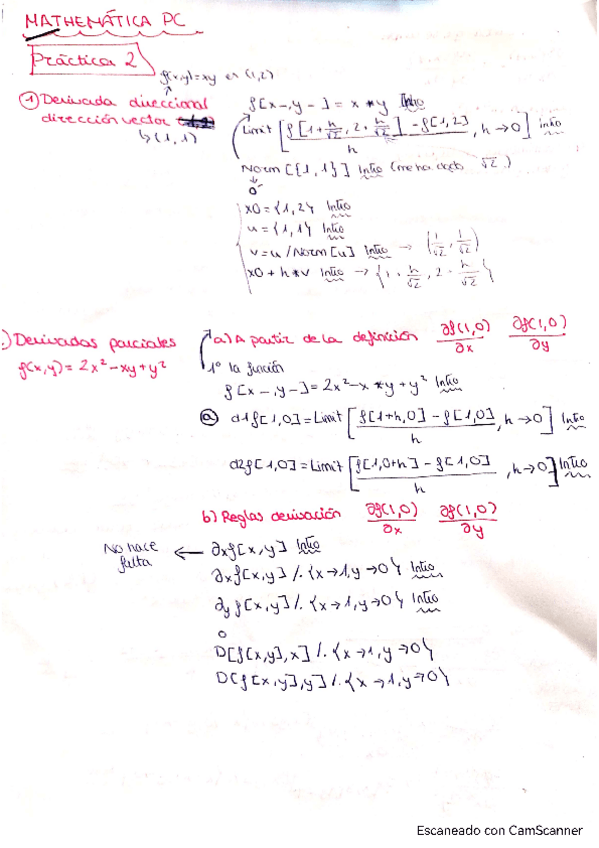 MATHEMÁTICA PC
Práctica 2
f(x,y)=xy en (1,2)
① Derivada direccional
dirección vector
↳(1,1)
f[x_,y_] = x * y Intro
Limit [ (f[1+h/√2, 2+h/√2] - f[1,2]) / h , h→0 ] intro
Norm[{1,1}] Intro (me ha dado √2)
o
x0 = {1,2} Intro
u = {1,1} Intro
v = u/Norm[u] Intro → (1/√2, 1/√2)
x0 + h*v Intro → {1+h/√2, 2+h/√2}
) Derivadas parciales
f(x,y) = 2x²-xy+y²
a) A partir de la definición ∂f(1,0)/∂x ∂f(1,0)/∂y
1º la función
f[x_,y_]= 2x²-x*y+y² Intro
ⓐ d1f[1,0] = Limit [ (f[1+h,0] - f[1,0]) / h , h→0 ] Intro
d2f[1,0] = Limit [ (f[1,0+h] - f[1,0]) / h , h→0 ] Intro
b) Reglas derivación ∂f(1,0)/∂x ∂f(1,0)/∂y
No hace falta ← ∂x f[x,y] Intro
∂x f[x,y] /. {x→1,y→0} Intro
∂y f[x,y] /. {x→1,y→0} Intro
o
D[f[x,y],x] /. {x→1,y→0}
D[f[x,y],y] /. {x→1,y→0}
Escaneado con CamScanner